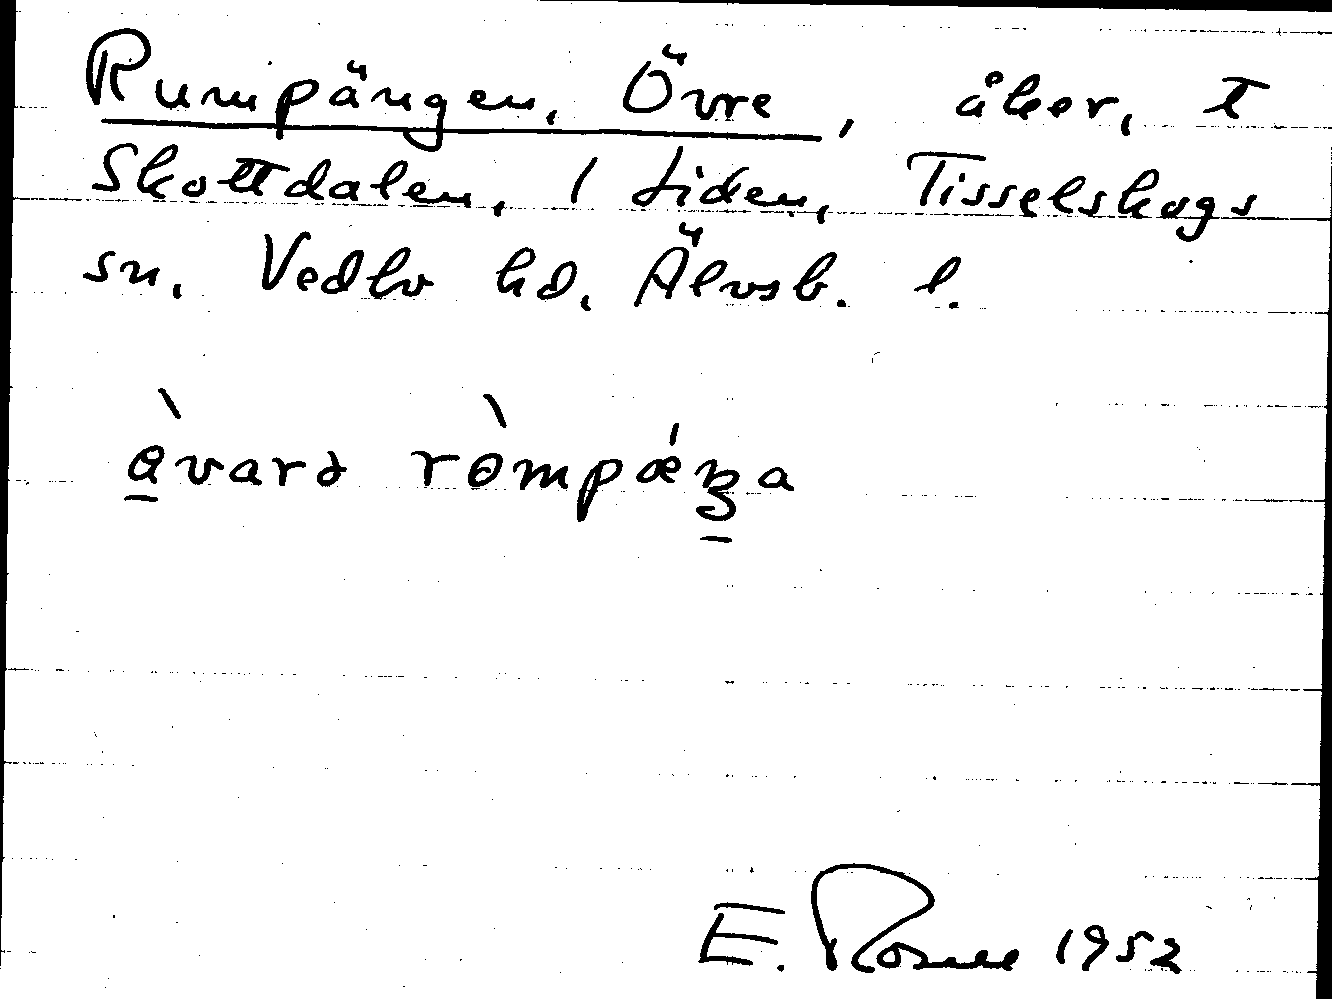 Rumpängen, Övre, åker, t
Skottdalen, 1 Liden, Tisselskogs
sn. Vedbo hd. Älvsb. l.
ə̀varə ròmpǽŋa
E. Rosell 1952